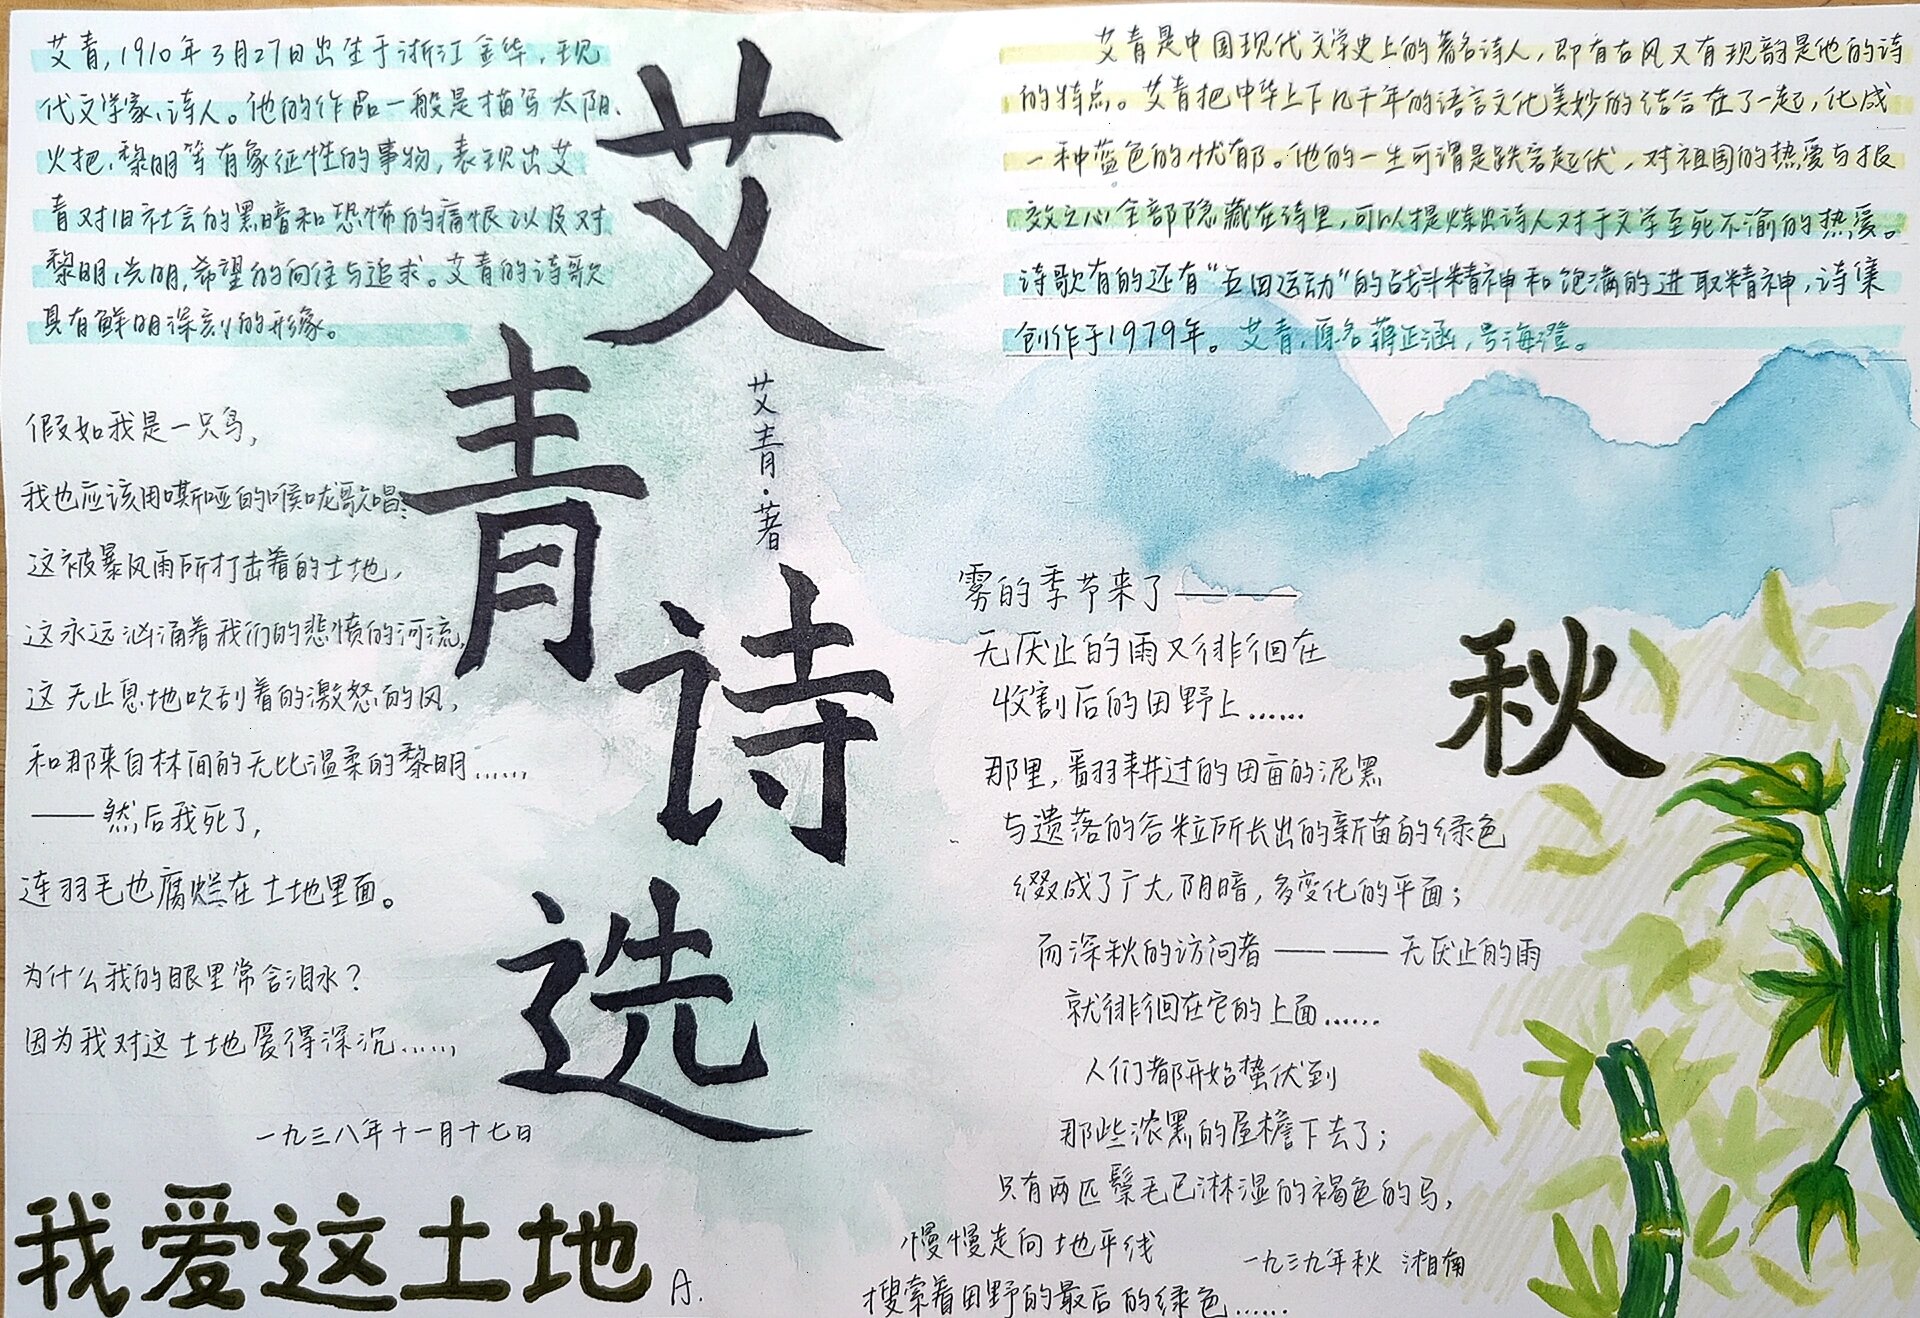 艾青,1910年3月27日出生于浙江金华,现
代文学家、诗人。他的作品一般是描写太阳、
火把、黎明等有象征性的事物,表现出艾
青对旧社会的黑暗和恐怖的痛恨以及对
黎明,光明,希望的向往与追求。艾青的诗歌
具有鲜明深刻的形象。
假如我是一只鸟,
我也应该用嘶哑的喉咙歌唱:
这被暴风雨所打击着的土地,
这永远汹涌着我们的悲愤的河流,
这无止息地吹刮着的激怒的风,
和那来自林间的无比温柔的黎明……,
——然后我死了,
连羽毛也腐烂在土地里面。
为什么我的眼里常含泪水?
因为我对这土地爱得深沉……,
一九三八年十一月十七日
我爱这土地
A.
艾青诗选
艾青·著
艾青是中国现代文学史上的著名诗人,即有古风又有现韵是他的诗
的特点。艾青把中华上下几千年的语言文化美妙的结合在了一起,化成
一种蓝色的忧郁。他的一生可谓是跌宕起伏,对祖国的热爱与报
效之心全部隐藏在诗里,可以提炼出诗人对于文学至死不渝的热爱。
诗歌有的还有“五四运动“的战斗精神和饱满的进取精神,诗集
创作于1979年。艾青,原名蒋正涵,号海澄。
秋
雾的季节来了———
无厌止的雨又徘徊在
收割后的田野上……
那里,翻耕过的田亩的泥黑
与遗落的谷粒所长出的新苗的绿色
缀成了广大,阴暗,多变化的平面;
而深秋的访问者———无厌止的雨
就徘徊在它的上面……
人们都开始蛰伏到
那些浓黑的屋檐下去了;
只有两匹鬃毛已淋湿的褐色的马,
慢慢走向地平线
搜索着田野的最后的绿色……
一九三九年秋 湘南